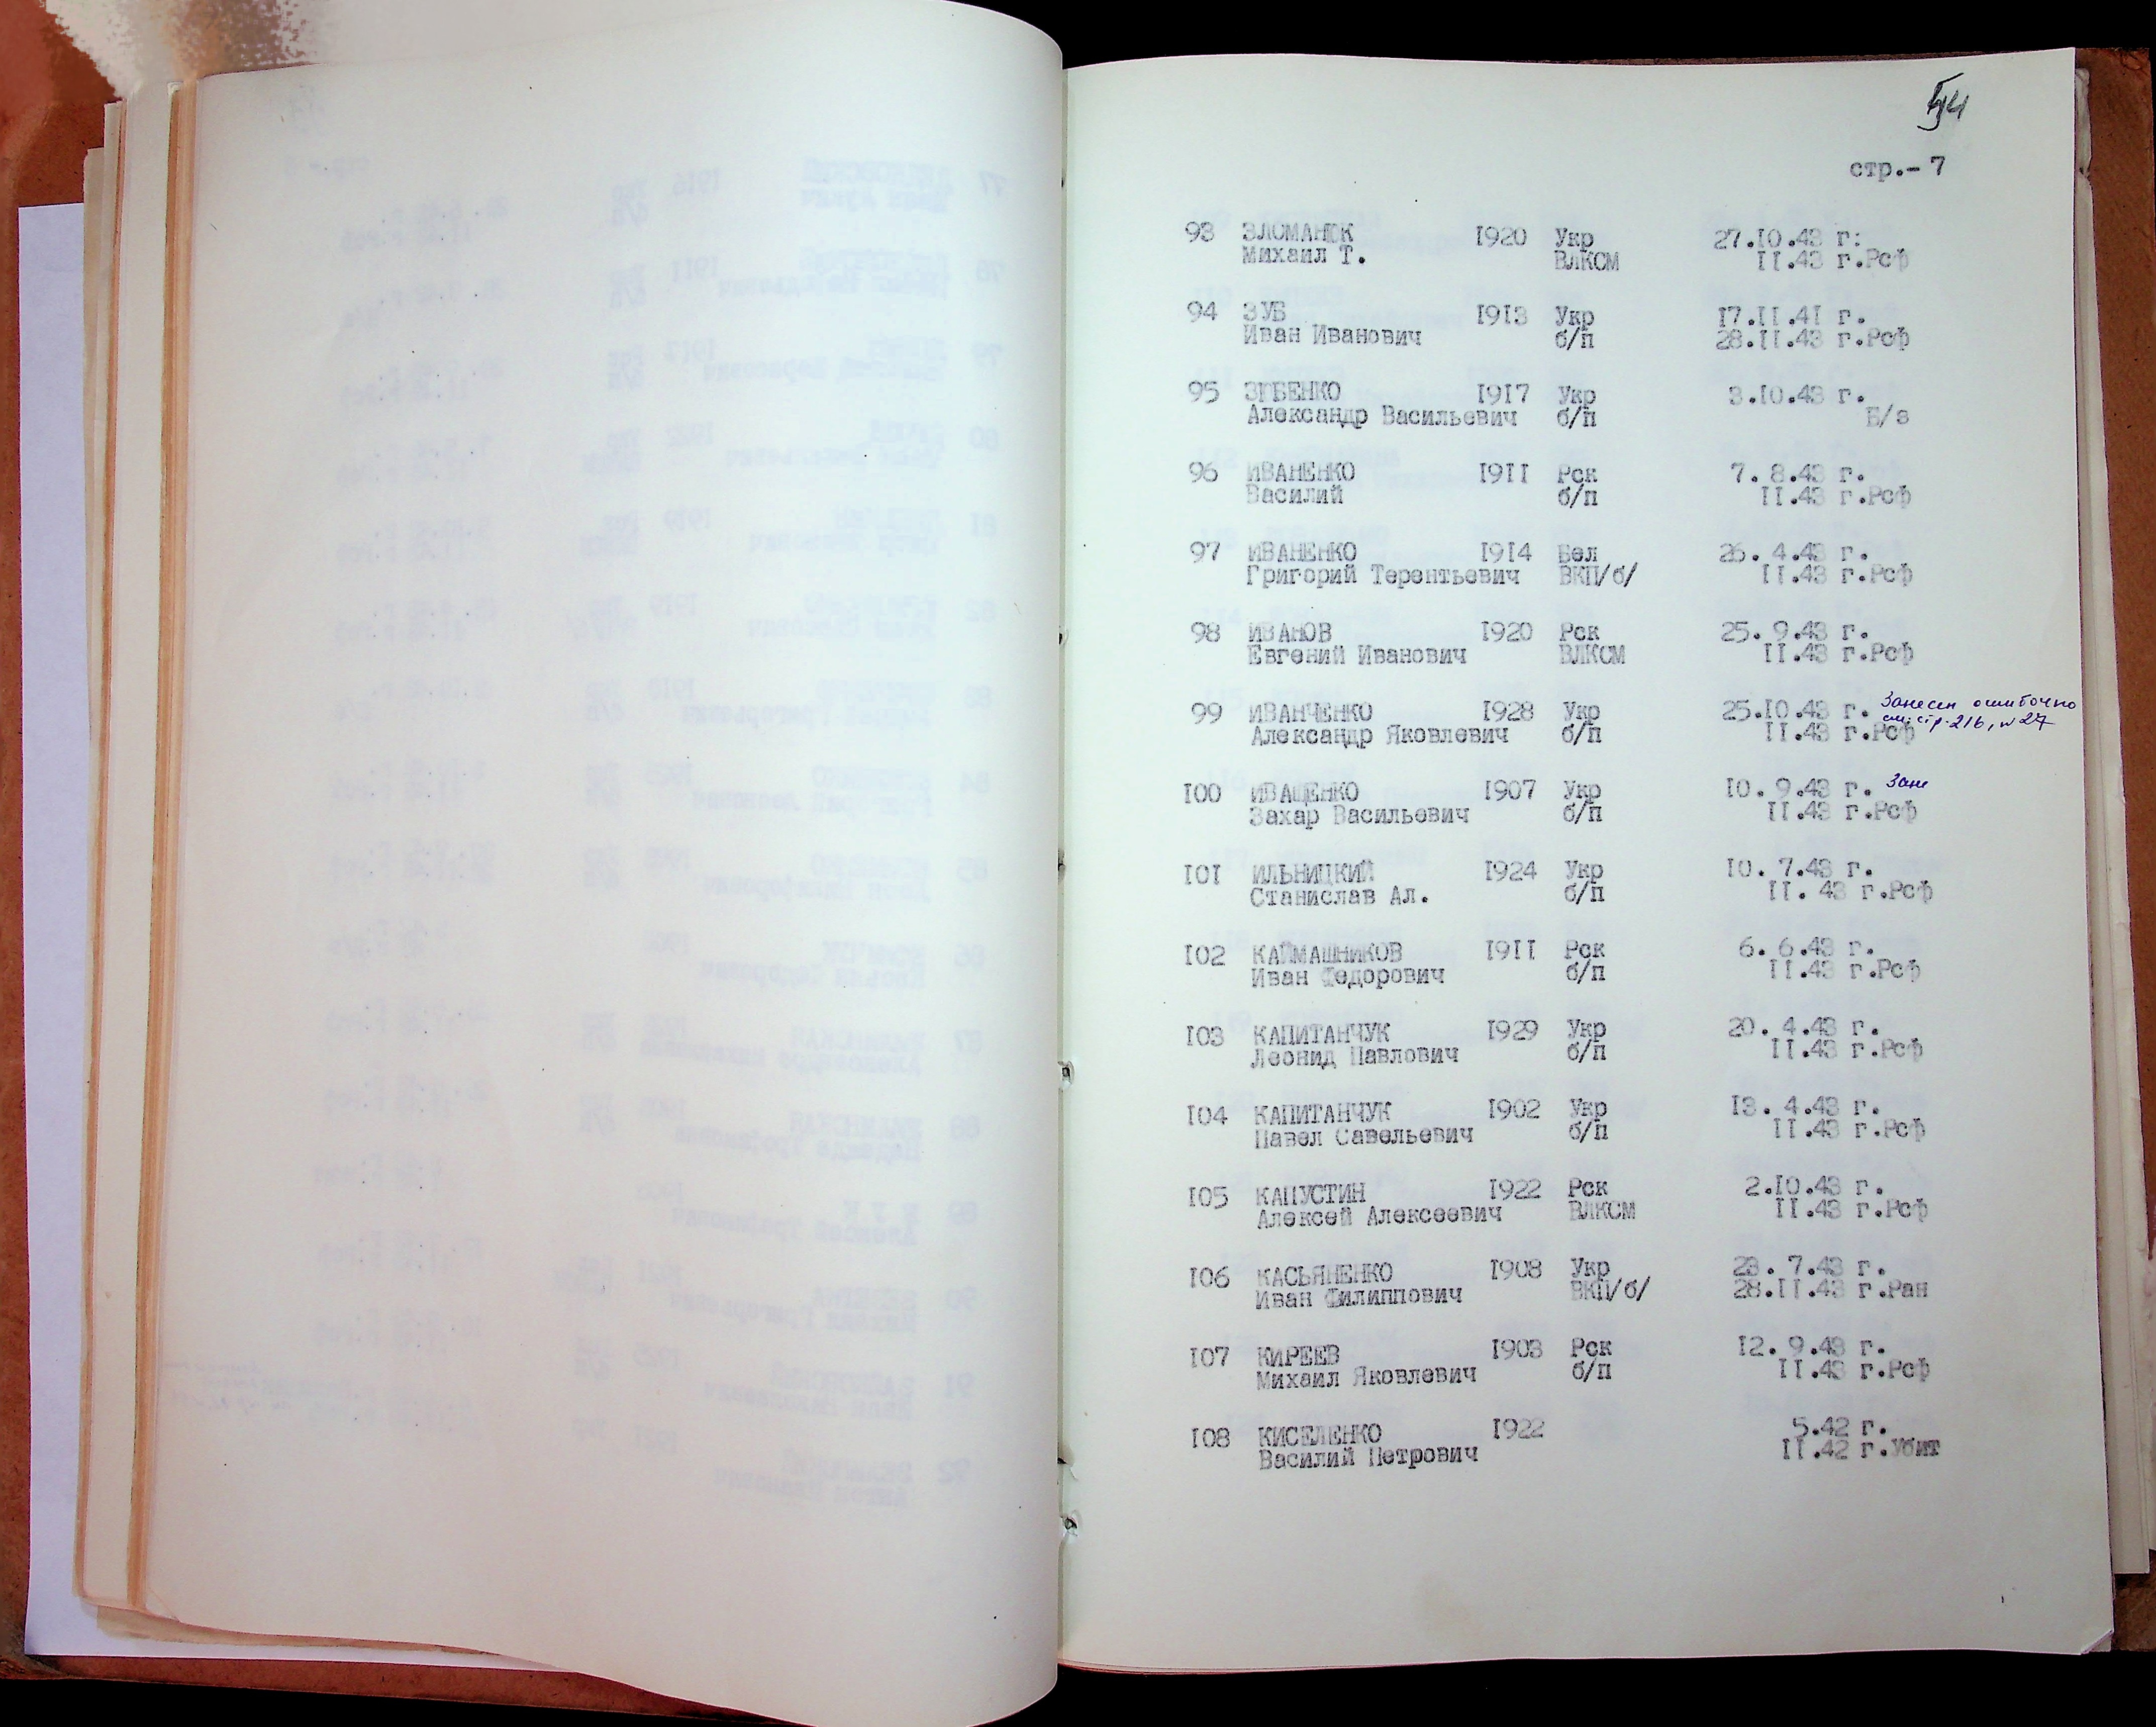 стр.- 7
93 ЗЛОМАНЮК 1920 Укр 27.10.43 г:
Михаил Т. ВЛКСМ 11.43 г.Рсф
94 ЗУБ 1913 Укр 17.11.41 г.
Иван Иванович б/п 28.11.43 г.Рсф
95 ЗЮБЕНКО 1917 Укр 3.10.43 г.
Александр Васильевич б/п Б/з
96 ИВАНЕНКО 1911 Рск 7. 8.43 г.
Василий б/п 11.43 г.Рсф
97 ИВАНЕНКО 1914 Бел 26. 4.43 г.
Григорий Терентьевич ВКП/б/ 11.43 г.Рсф
98 ИВАНОВ 1920 Рск 25. 9.43 г.
Евгений Иванович ВЛКСМ 11.43 г.Рсф
99 ИВАНЧЕНКО 1928 Укр 25.10.43 г. Занесен ошибочно
Александр Яковлевич б/п 11.43 г.Рсф см.стр.216, №27
100 ИВАЩЕНКО 1907 Укр 10. 9.43 г. Зане
Захар Васильевич б/п 11.43 г.Рсф
101 ИЛЬНИЦКИЙ 1924 Укр 10. 7.43 г.
Станислав Ал. б/п 11. 43 г.Рсф
102 КАЙМАШНИКОВ 1911 Рск 6. 6.43 г.
Иван Федорович б/п 11.43 г.Рсф
103 КАПИТАНЧУК 1929 Укр 20. 4.43 г.
Леонид Павлович б/п 11.43 г.Рсф
104 КАПИТАНЧУК 1902 Укр 13. 4.43 г.
Павел Савельевич б/п 11.43 г.Рсф
105 КАПУСТИН 1922 Рск 2.10.43 г.
Алексей Алексеевич ВЛКСМ 11.43 г.Рсф
106 КАСЬЯНЕНКО 1908 Укр 23. 7.43 г.
Иван Филиппович ВКП/б/ 28.11.43 г.Ран
107 КИРЕЕВ 1903 Рск 12. 9.43 г.
Михаил Яковлевич б/п 11.43 г.Рсф
108 КИСЕЛЕНКО 1922 5.42 г.
Василий Петрович 11.42 г.Убит